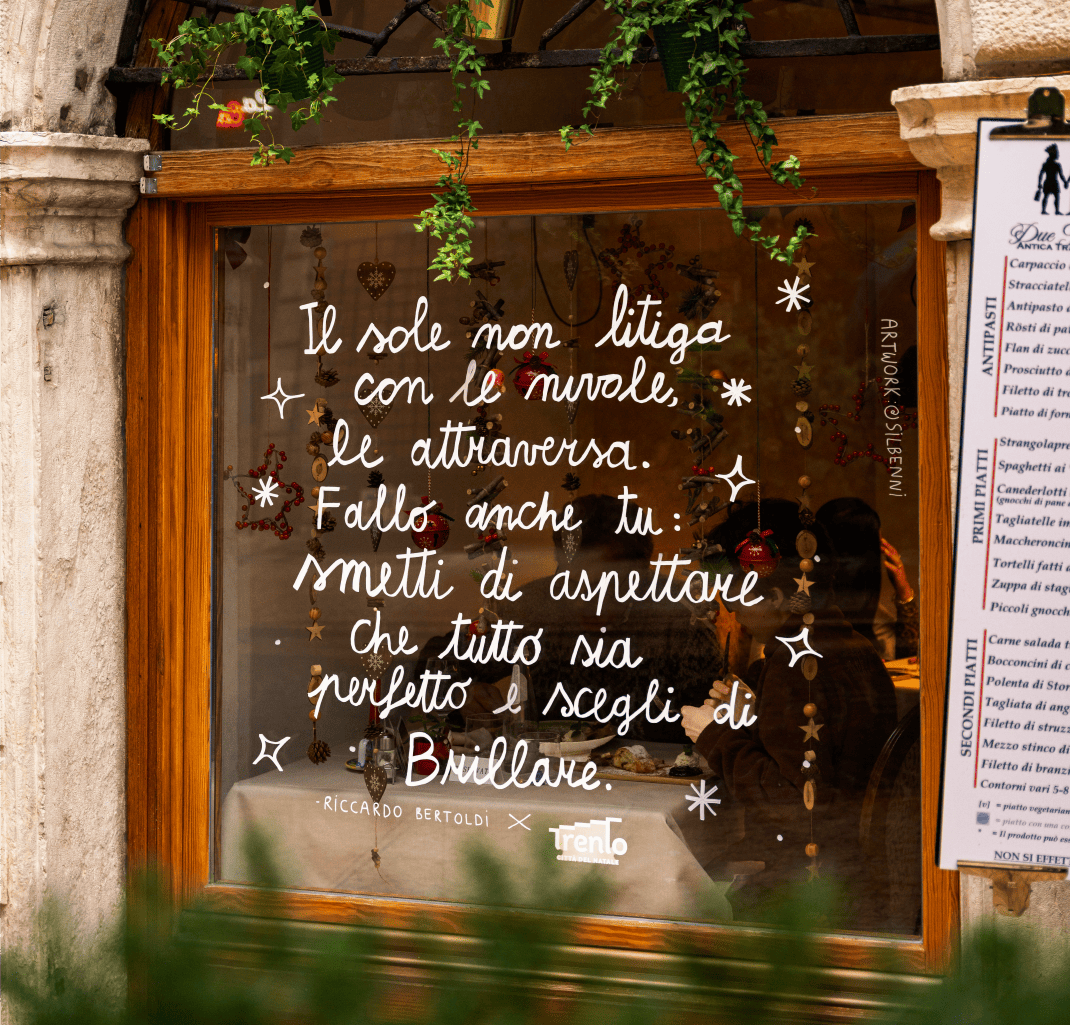 Il sole non litiga
con le nuvole,
le attraversa.
Fallo anche tu:
smetti di aspettare
che tutto sia
perfetto e scegli di
Brillare.
-RICCARDO BERTOLDI X Trento
CITTÀ DEL NATALE
ARTWORK:@SILBENNI
Due
ANTICA
ANTIPASTI
Carpaccio
Antipasto
Rösti di
Flan di
Prosciutto
Filetto di
Piatto di
PRIMI PIATTI
Spaghetti ai
Canederlotti
(gnocchi di pane
Tagliatelle
Tortelli fatti
Zuppa di
Piccoli
SECONDI PIATTI
Carne salada
Bocconcini di
Polenta di
Tagliata di
Filetto di
Mezzo stinco di
Filetto di
Contorni vari 5-8
[v] = piatto
= piatto con una
* = Il prodotto può
NON SI